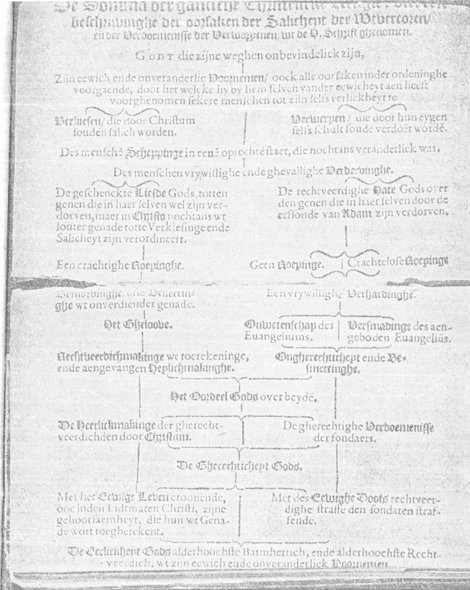 De Somma der gantsche Christelicke
beschrijvinghe der oorsaken der Salicheyt der Wtvercoren/
ende der Verdoemenisse der Verworpenen, wt de H. Schrift ghenomen.
GODT die zijne weghen onbevindelick zijn,
Zijn eewich ende onveranderlic Voornemen/ oock alle oorsaken inder ordeninghe
voorgaende, door het welcke hy by hem selven vander eewicheyt aen heeft
voorghenomen sekere menschen tot zijn selfs eerlickheyt te
Verkiesen/ die door Christum
souden salich worden.
Verwerpen/ die door hun eygen
selfs schult soude verdoēt wordē.
Des menschē Scheppinge in eenē oprechtē staet, die nochtans veranderlick was.
Des menschen vrywillighe ende ghevallighe Verdervinghe.
De geschenckte Liefde Gods, totten
genen die in haer selven wel zijn ver-
dorven, maer in Christo nochtans wt
louter genade totte Verkiesinge ende
Salicheyt zijn verordineert.
De rechtveerdighe Hate Gods over
den genen die in haer selven door de
erfsonde van Adam zijn verdorven.
Een crachtighe Roepinghe.
Geen Roepinge.
Crachtelose Roepinge
ghe wt onverdiender genade.
Een vrywillighe Verhardinghe.
Het Gheloove.
Onwetenschap des
Euangeliums.
Versmadinge des aen-
geboden Euangeliūs.
Rechtveerdichmakinge wt toerekeninge,
ende aengevangen Heylichmakinghe.
Ongherechticheyt ende Be-
smettinghe.
Het Oordeel Gods over beydē.
De Heerlickmakinge der gherecht-
veerdichden door Christum.
De gherechtighe Verdoemenisse
der sondaers.
De Gherechticheyt Gods.
Met het Eewige Leven croonende,
ooc inden Lidtmaten Christi, zijne
gehoorsaemheyt, die hun wt Gena-
de wort toegherekent.
Met des Eewighe Doots rechtveer-
dighe straffe den sondaren straf-
fende.
De Eerlicheyt Gods alderhoochste Barmhertich, ende alderhoochste Recht-
veerdich, wt zijn eewich ende onveranderlick Voornemen.